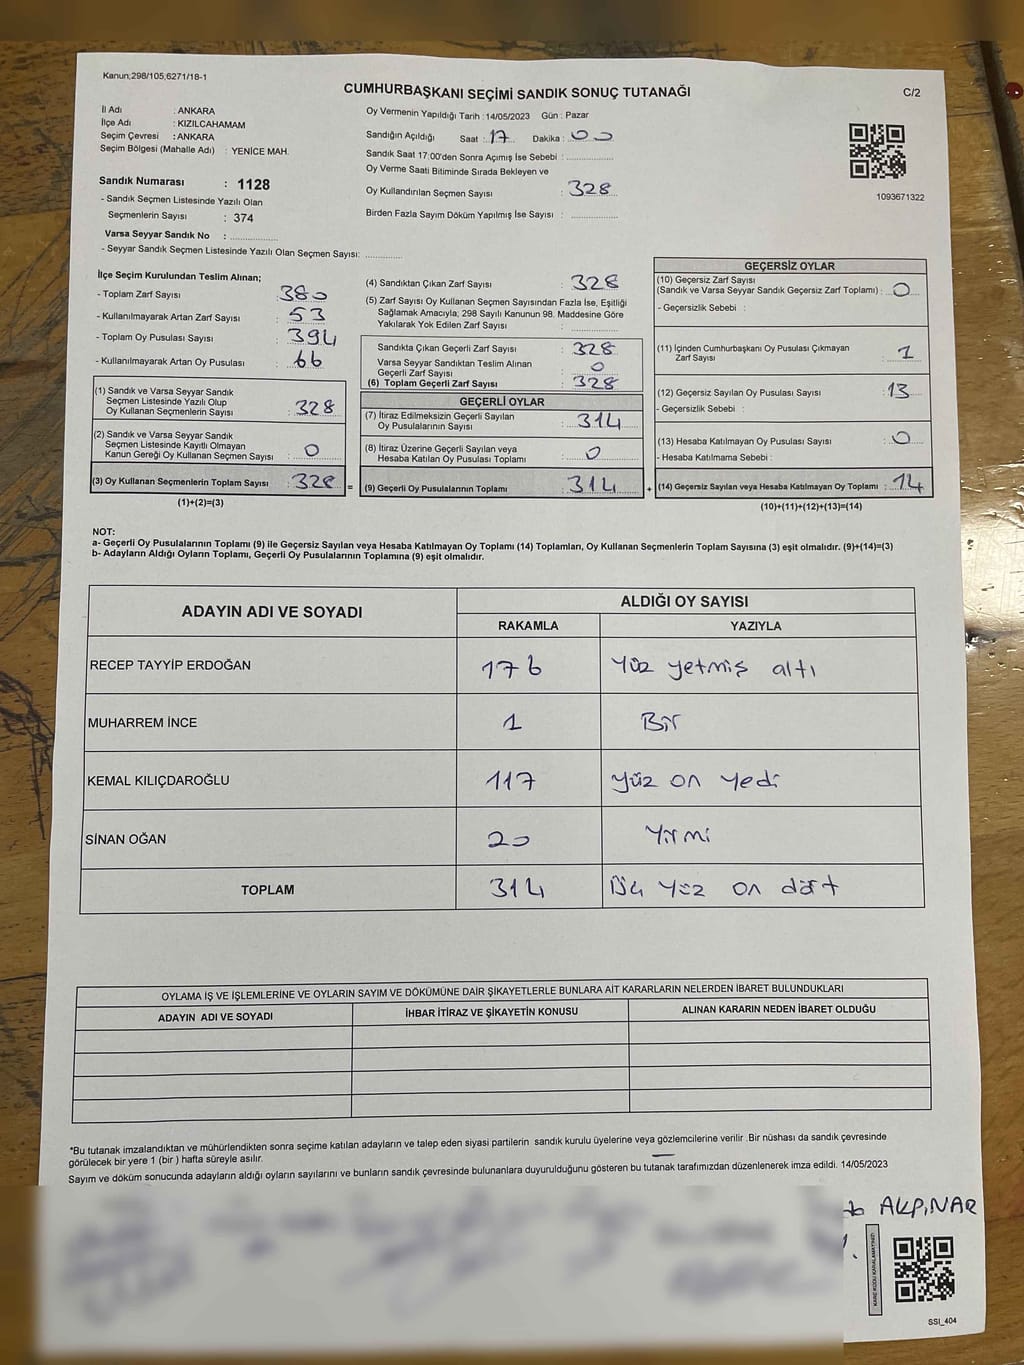 Kanun;298/105,6271/18-1
CUMHURBAŞKANI SEÇİMİ SANDIK SONUÇ TUTANAĞI
C/2
İl Adı : ANKARA
İlçe Adı : KIZILCAHAMAM
Seçim Çevresi : ANKARA
Seçim Bölgesi (Mahalle Adı) : YENİCE MAH.
Sandık Numarası : 1128
- Sandık Seçmen Listesinde Yazılı Olan
Seçmenlerin Sayısı : 374
Varsa Seyyar Sandık No :
- Seyyar Sandık Seçmen Listesinde Yazılı Olan Seçmen Sayısı:
Oy Vermenin Yapıldığı Tarih : 14/05/2023 Gün : Pazar
Sandığın Açıldığı Saat : 17 Dakika : 00
Sandık Saat 17:00'den Sonra Açımış İse Sebebi :
Oy Verme Saati Bitiminde Sırada Bekleyen ve
Oy Kullandırılan Seçmen Sayısı : 328
Birden Fazla Sayım Döküm Yapılmış İse Sayısı :
1093671322
İlçe Seçim Kurulundan Teslim Alınan;
- Toplam Zarf Sayısı : 380
- Kullanılmayarak Artan Zarf Sayısı : 53
- Toplam Oy Pusulası Sayısı : 394
- Kullanılmayarak Artan Oy Pusulası : 66
(1) Sandık ve Varsa Seyyar Sandık
Seçmen Listesinde Yazılı Olup
Oy Kullanan Seçmenlerin Sayısı : 328
(2) Sandık ve Varsa Seyyar Sandık
Seçmen Listesinde Kayıtlı Olmayan
Kanun Gereği Oy Kullanan Seçmen Sayısı : 0
(3) Oy Kullanan Seçmenlerin Toplam Sayısı : 328 =
(1)+(2)=(3)
(4) Sandıktan Çıkan Zarf Sayısı : 328
(5) Zarf Sayısı Oy Kullanan Seçmen Sayısından Fazla İse, Eşitliği
Sağlamak Amacıyla; 298 Sayılı Kanunun 98. Maddesine Göre
Yakılarak Yok Edilen Zarf Sayısı :
Sandıkta Çıkan Geçerli Zarf Sayısı : 328
Varsa Seyyar Sandıktan Teslim Alınan
Geçerli Zarf Sayısı : 0
(6) Toplam Geçerli Zarf Sayısı : 328
GEÇERLİ OYLAR
(7) İtiraz Edilmeksizin Geçerli Sayılan
Oy Pusulalarının Sayısı : 314
(8) İtiraz Üzerine Geçerli Sayılan veya
Hesaba Katılan Oy Pusulası Toplamı : 0
(9) Geçerli Oy Pusulalarının Toplamı : 314 +
GEÇERSİZ OYLAR
(10) Geçersiz Zarf Sayısı
(Sandık ve Varsa Seyyar Sandık Geçersiz Zarf Toplamı) : 0
- Geçersizlik Sebebi :
(11) İçinden Cumhurbaşkanı Oy Pusulası Çıkmayan
Zarf Sayısı : 1
(12) Geçersiz Sayılan Oy Pusulası Sayısı : 13
- Geçersizlik Sebebi :
(13) Hesaba Katılmayan Oy Pusulası Sayısı : 0
- Hesaba Katılmama Sebebi :
(14) Geçersiz Sayılan veya Hesaba Katılmayan Oy Toplamı : 14
(10)+(11)+(12)+(13)=(14)
NOT:
a- Geçerli Oy Pusulalarının Toplamı (9) ile Geçersiz Sayılan veya Hesaba Katılmayan Oy Toplamı (14) Toplamları, Oy Kullanan Seçmenlerin Toplam Sayısına (3) eşit olmalıdır. (9)+(14)=(3)
b- Adayların Aldığı Oyların Toplamı, Geçerli Oy Pusulalarının Toplamına (9) eşit olmalıdır.
ADAYIN ADI VE SOYADI ALDIĞI OY SAYISI
RAKAMLA YAZIYLA
RECEP TAYYİP ERDOĞAN 176 Yüz yetmiş altı
MUHARREM İNCE 1 Bir
KEMAL KILIÇDAROĞLU 117 yüz on yedi
SİNAN OĞAN 20 Yirmi
TOPLAM 314 Üç yüz on dört
OYLAMA İŞ VE İŞLEMLERİNE VE OYLARIN SAYIM VE DÖKÜMÜNE DAİR ŞİKAYETLERLE BUNLARA AİT KARARLARIN NELERDEN İBARET BULUNDUKLARI
ADAYIN ADI VE SOYADI İHBAR İTİRAZ VE ŞİKAYETİN KONUSU ALINAN KARARIN NEDEN İBARET OLDUĞU
*Bu tutanak imzalandıktan ve mühürlendikten sonra seçime katılan adayların ve talep eden siyasi partilerin sandık kurulu üyelerine veya gözlemcilerine verilir .Bir nüshası da sandık çevresinde
görülecek bir yere 1 (bir ) hafta süreyle asılır.
Sayım ve döküm sonucunda adayların aldığı oyların sayılarını ve bunların sandık çevresinde bulunanlara duyurulduğunu gösteren bu tutanak tarafımızdan düzenlenerek imza edildi. 14/05/2023
AKPINAR
KARE KODU KARALAMAYINIZ!
SSI_404